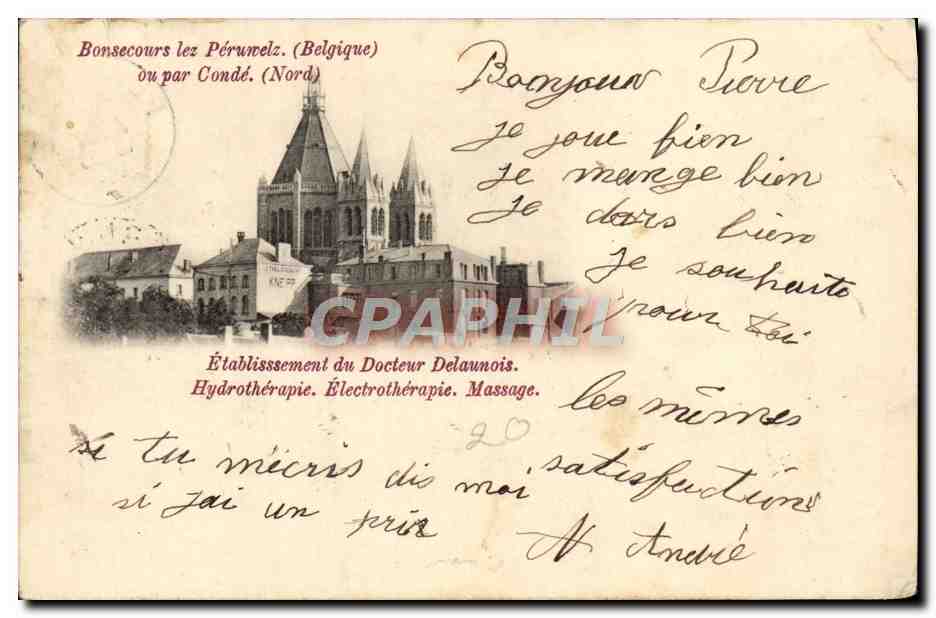 Bonsecours lez Péruwelz. (Belgique)
ou par Condé. (Nord)
Bonjour Pierre
je joue bien
je mange bien
je dors bien
je souhaite
pour toi
les mêmes
satisfactions
N André
KNEIPP
CPAPHIL
Établisssement du Docteur Delaunois.
Hydrothérapie. Électrothérapie. Massage.
20
si tu mécris dis moi
si jai un prix